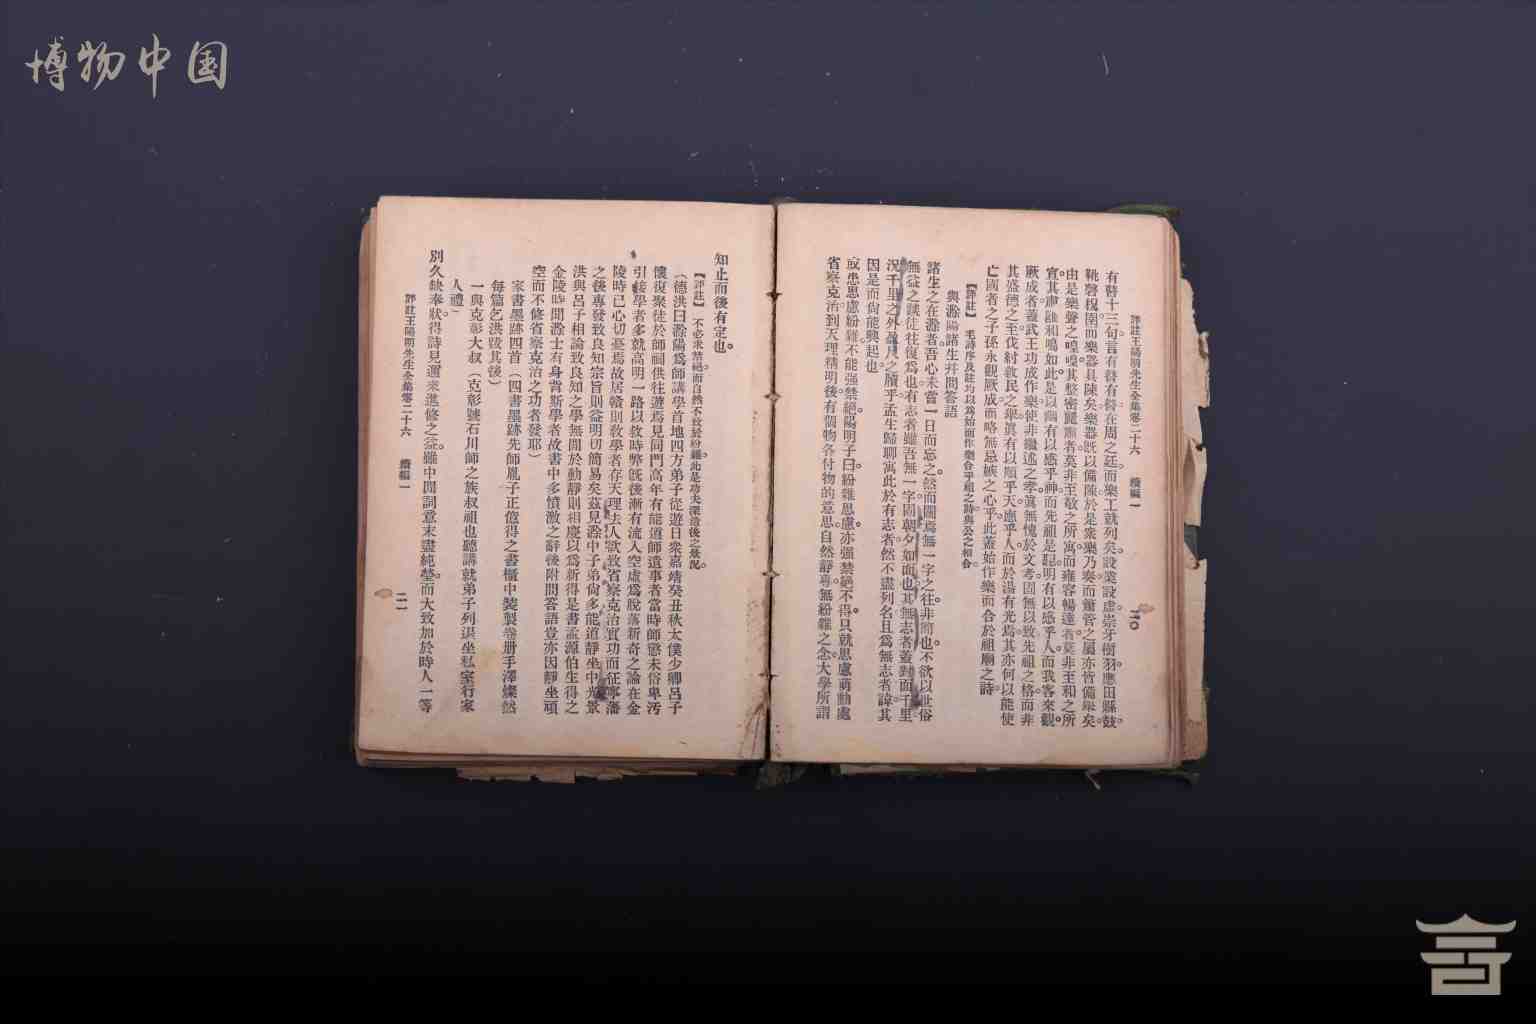 博物中国
評註王陽明先生全集卷二十六　續編一
二〇
有瞽十三句言有瞽有瞽在周之廷而樂工就列矣設業設虡崇牙樹羽應田縣鼓
鞉磬柷圉而樂器具陳矣樂器旣以備陳於是衆樂乃奏而簫管之屬亦皆備舉矣
由是樂聲之喤喤其整密麗肅者莫非至敬之所寓而雍容暢達者莫非至和之所
宣其肅雝和鳴如此是以幽有以感乎神而先祖是聽明有以感乎人而我客來觀
厥成者蓋武王功成作樂使非繼述之孝眞無愧於文考固無以致先祖之格而非
其盛德之至伐紂救民之舉眞有以順乎天應乎人而於湯有光焉其亦何以能使
亡國者之子孫永觀厥成而略無忌嫉之心乎此蓋始作樂而合於祖廟之詩
【評註】毛詩序及註均以爲始而作樂合乎祖之詩與公之相合
與滁陽諸生幷問答語
諸生之在滁者吾心未嘗一日而忘之然而闊焉無一字之往非簡也不欲以世俗
無益之談徒往復爲也有志者雖吾無一字固朝夕如面也其無志者蓋對面千里
況千里之外盈尺之牘乎孟生歸聊寓此於有志者然不盡列名且爲無志者諱其
因是而尙能興起也
或患思慮紛雜不能强禁絕陽明子曰紛雜思慮亦强禁絕不得只就思慮萌動處
省察克治到天理精明後有個物各付物的意思自然靜專無紛雜之念大學所謂
知止而後有定也
【評註】不必求禁絕而自然不致於紛雜此是功夫深造後之景況
（德洪曰滁陽爲師講學首地四方弟子從遊日衆嘉靖癸丑秋太僕少卿呂子
懷復聚徒於師祠供往遊焉見同門高年有能道師遺事者當時師懲末俗卑汚
引接學者多就高明一路以救時弊旣後漸有流入空虛爲脫落新奇之論在金
陵時已心切憂焉故居贛則敎學者存天理去人欲致省察克治實功而征寧藩
之後專發致良知宗旨則益明切簡易矣茲見滁中子弟尙多能道靜坐中光景
洪與呂子相論致良知之學無間於動靜則相慶以爲新得是書孟源伯生得之
金陵時聞滁士有身背斯學者故書中多憤激之辭後附問答語豈亦因靜坐頑
空而不修省察克治之功者發耶）
家書墨跡四首（四書墨跡先師胤子正億得之書櫃中裝製卷册手澤燦然
每篇乞洪跋其後）
一與克彰大叔（克彰號石川師之族叔祖也聽講就弟子列退坐私室行家
人禮）
別久缺奉狀得詩見邇來進修之益雖中間詞意未盡純瑩而大致加於時人一等
評註王陽明先生全集卷二十六　續編一
二一